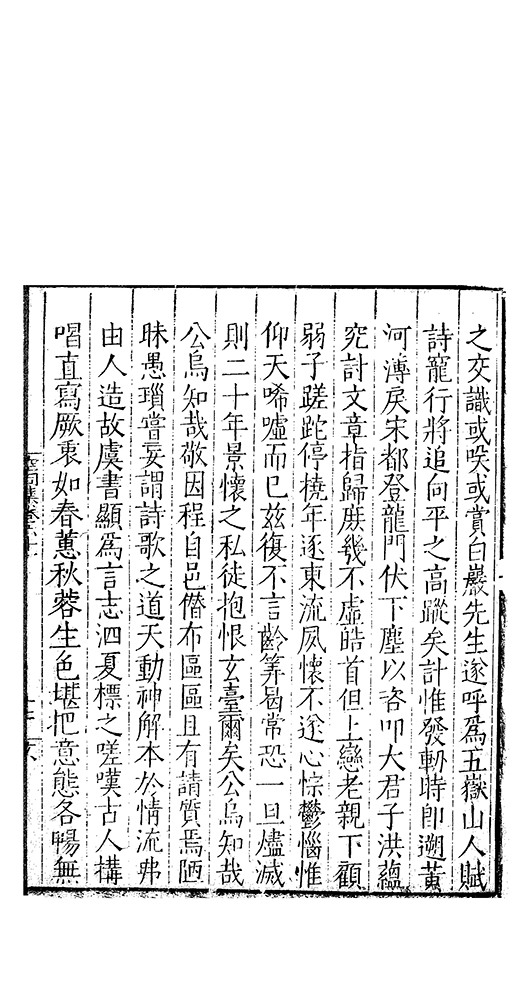 之交識或唉或賞白巖先生遂呼爲五嶽山人賦
詩寵行將追向平之高蹤矣計惟發軔時卽遡黃
河薄戾宋都登龍門伏下塵以咨叩大君子洪蘊
究討文章指歸庶幾不虛皓首但上戀老親下顧
弱子蹉跎停橈年逐東流夙懷不遂心悰鬱惱惟
仰天唏噓而已玆復不言齡筭曷常恐一旦燼滅
則二十年景懷之私徒抱恨玄臺爾矣公烏知哉
公烏知哉敬因程自邑僭布區區且有請質焉陋
昧愚瑣嘗妄謂詩歌之道天動神解本於情流弗
由人造故虞書顯爲言志泗夏標之嗟嘆古人搆
唱直寫厥衷如春蕙秋蓉生色堪把意態各暢無